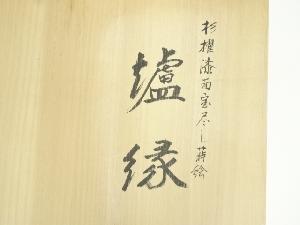 杉櫂漆菊宝尽し蒔絵
爐縁